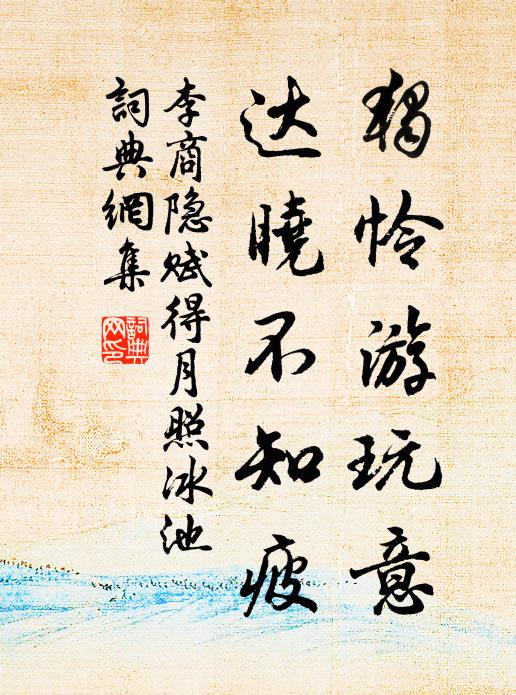 獨怜游玩意
达曉不知疲
李商隐赋得月照冰池
詞典網集
詞典网印